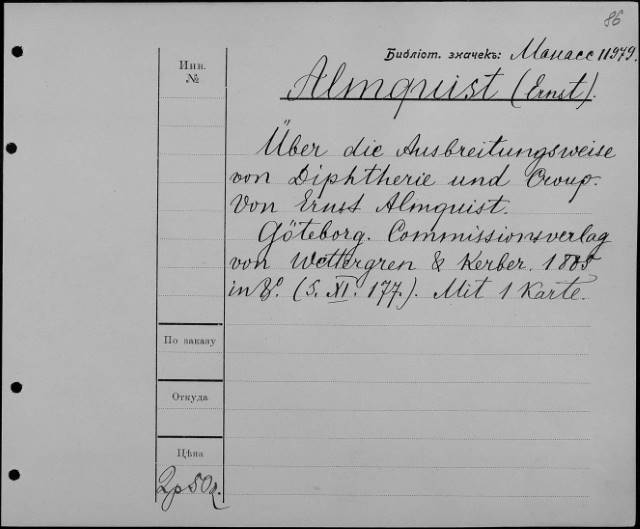 86
Библіот. значекъ: Манасс 11979.
Инв.
№
Almquist (Ernst).
Über die Ausbreitungsweise
von Diphtherie und Croup.
Von Ernst Almquist.
Göteborg. Commissionsverlag
von Wettergren & Kerber. 1885
in 8º. (S. XI. 177.). Mit 1 Karte.
По заказу
Откуда
Цѣна
2р 50к.